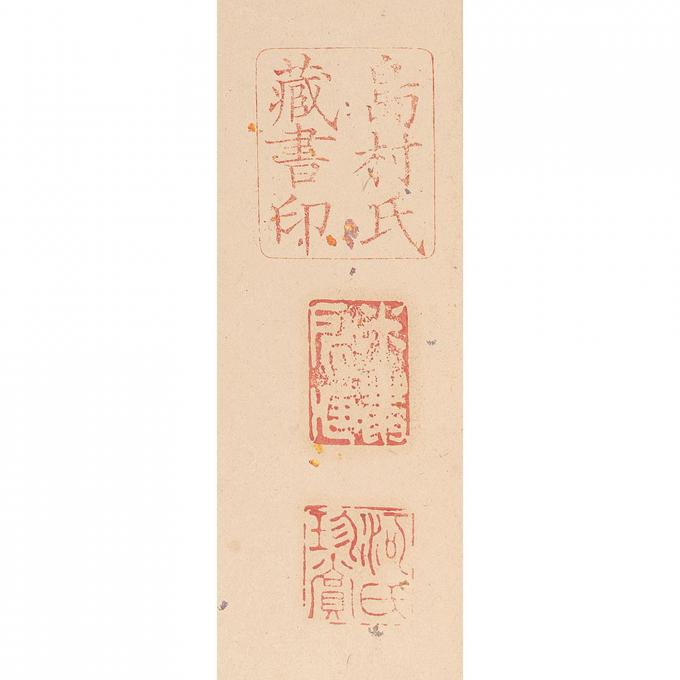 島村氏
藏書印
河氏
珍賞